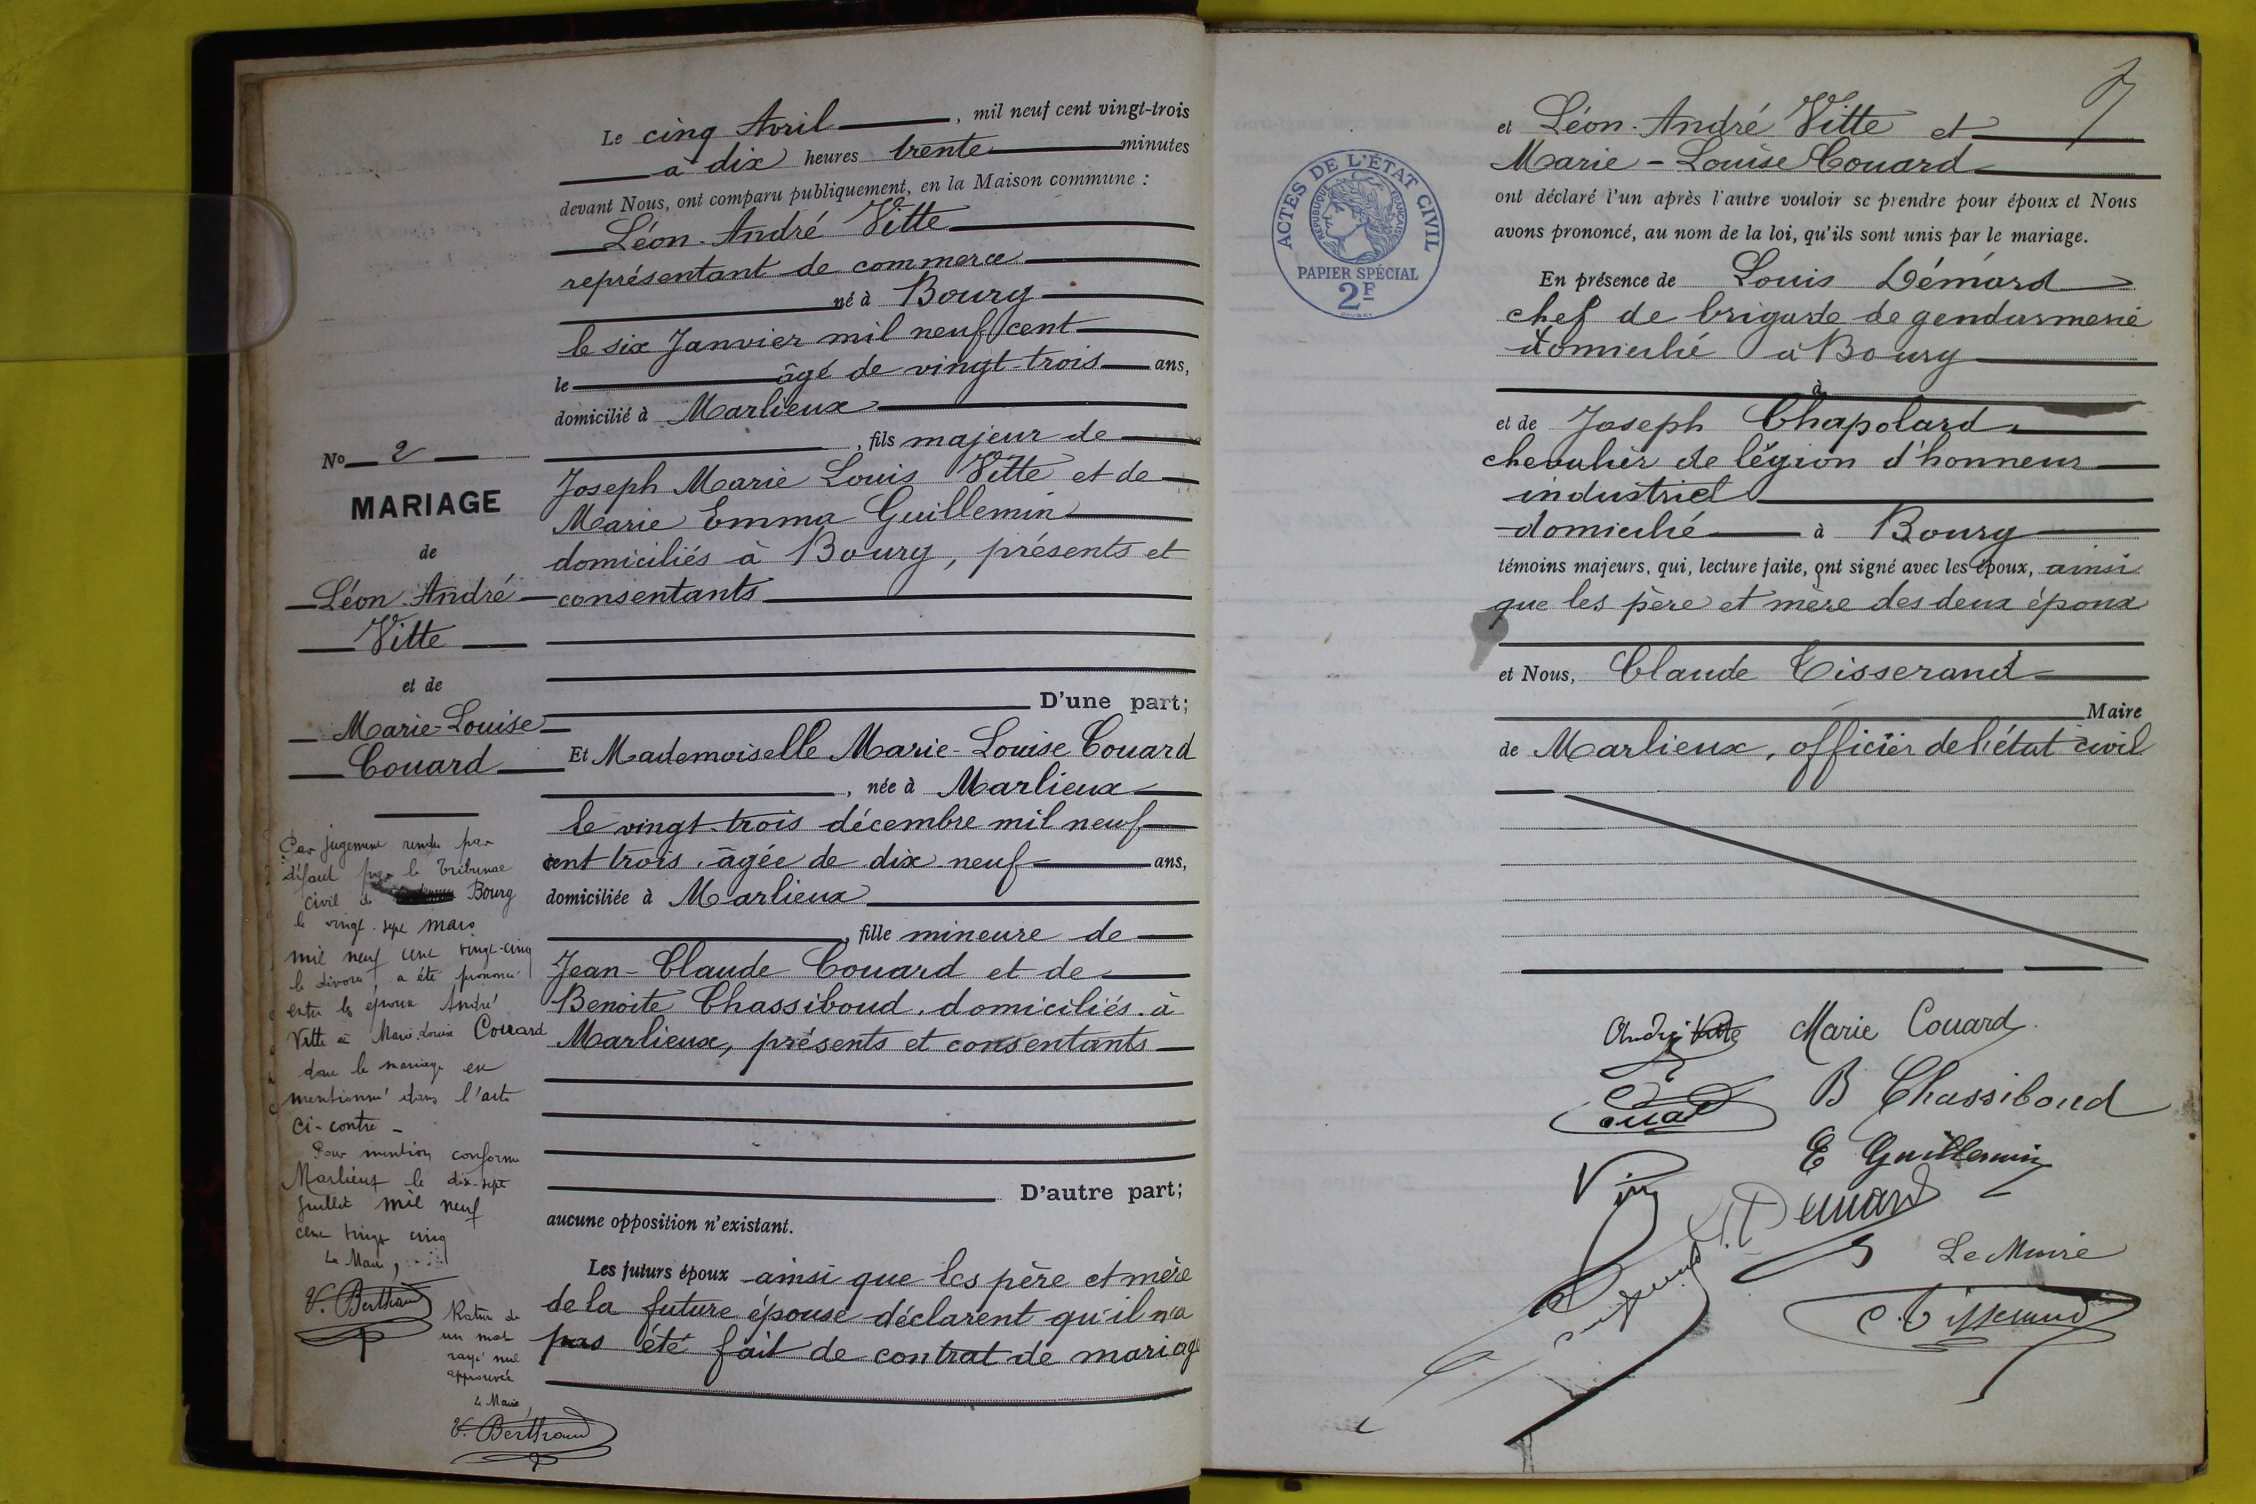 Le cinq Avril, mil neuf cent vingt-trois
à dix heures trente minutes
devant Nous, ont comparu publiquement, en la Maison commune :
Léon-André Vitte
représentant de commerce
né à Bourg
le six Janvier mil neuf cent
le âgé de vingt-trois ans,
domicilié à Marlieux
, fils majeur de
Joseph Marie Louis Vitte et de
Marie Emma Guillemin
domiciliés à Bourg, présents et
consentants
D'une part;
Et Mademoiselle Marie-Louise Couard
, née à Marlieux
le vingt-trois décembre mil neuf
cent trois, âgée de dix neuf ans,
domiciliée à Marlieux
, fille mineure de
Jean-Claude Couard et de
Benoite Chassiboud, domiciliés à
Marlieux, présents et consentants
D'autre part;
aucune opposition n'existant.
Les futurs époux ainsi que les père et mère
de la future épouse déclarent qu'il n'a
pas été fait de contrat de mariage
No 2
MARIAGE
de
Léon-André
Vitte
et de
Marie-Louise
Couard
Par jugement rendu par
défaut par le Tribunal
civil de Bourg
le vingt-sept mars
mil neuf cent vingt-cinq
le divorce a été prononcé
entre les époux André
Vitte et Marie-Louise Couard
dont le mariage est
mentionné dans l'acte
ci-contre -
Pour mention conforme
Marlieux le dix-sept
Juillet mil neuf
cent vingt cinq
Le Maire,
V. Berthaud
Rature de
un mot
rayé nul
approuvée
Le Maire,
V. Berthaud
7
et Léon-André Vitte et
Marie-Louise Couard
ont déclaré l'un après l'autre vouloir se prendre pour époux et Nous
avons prononcé, au nom de la loi, qu'ils sont unis par le mariage.
En présence de Louis Démard
chef de brigade de gendarmerie
domicilié à Bourg
à
et de Joseph Chapolard
chevalier de légion d'honneur
industriel
domicilié à Bourg
témoins majeurs, qui, lecture faite, ont signé avec les époux, ainsi
que les père et mère des deux époux
et Nous, Claude Tisserand
Maire
de Marlieux, officier de l'état civil
ACTES DE L'ÉTAT CIVIL
RÉPUBLIQUE FRANÇAISE
PAPIER SPÉCIAL
2F
André Vitte Marie Couard
Couard
B Chassiboud
E Guillemin
Demard
Le Maire
C. Tisserand